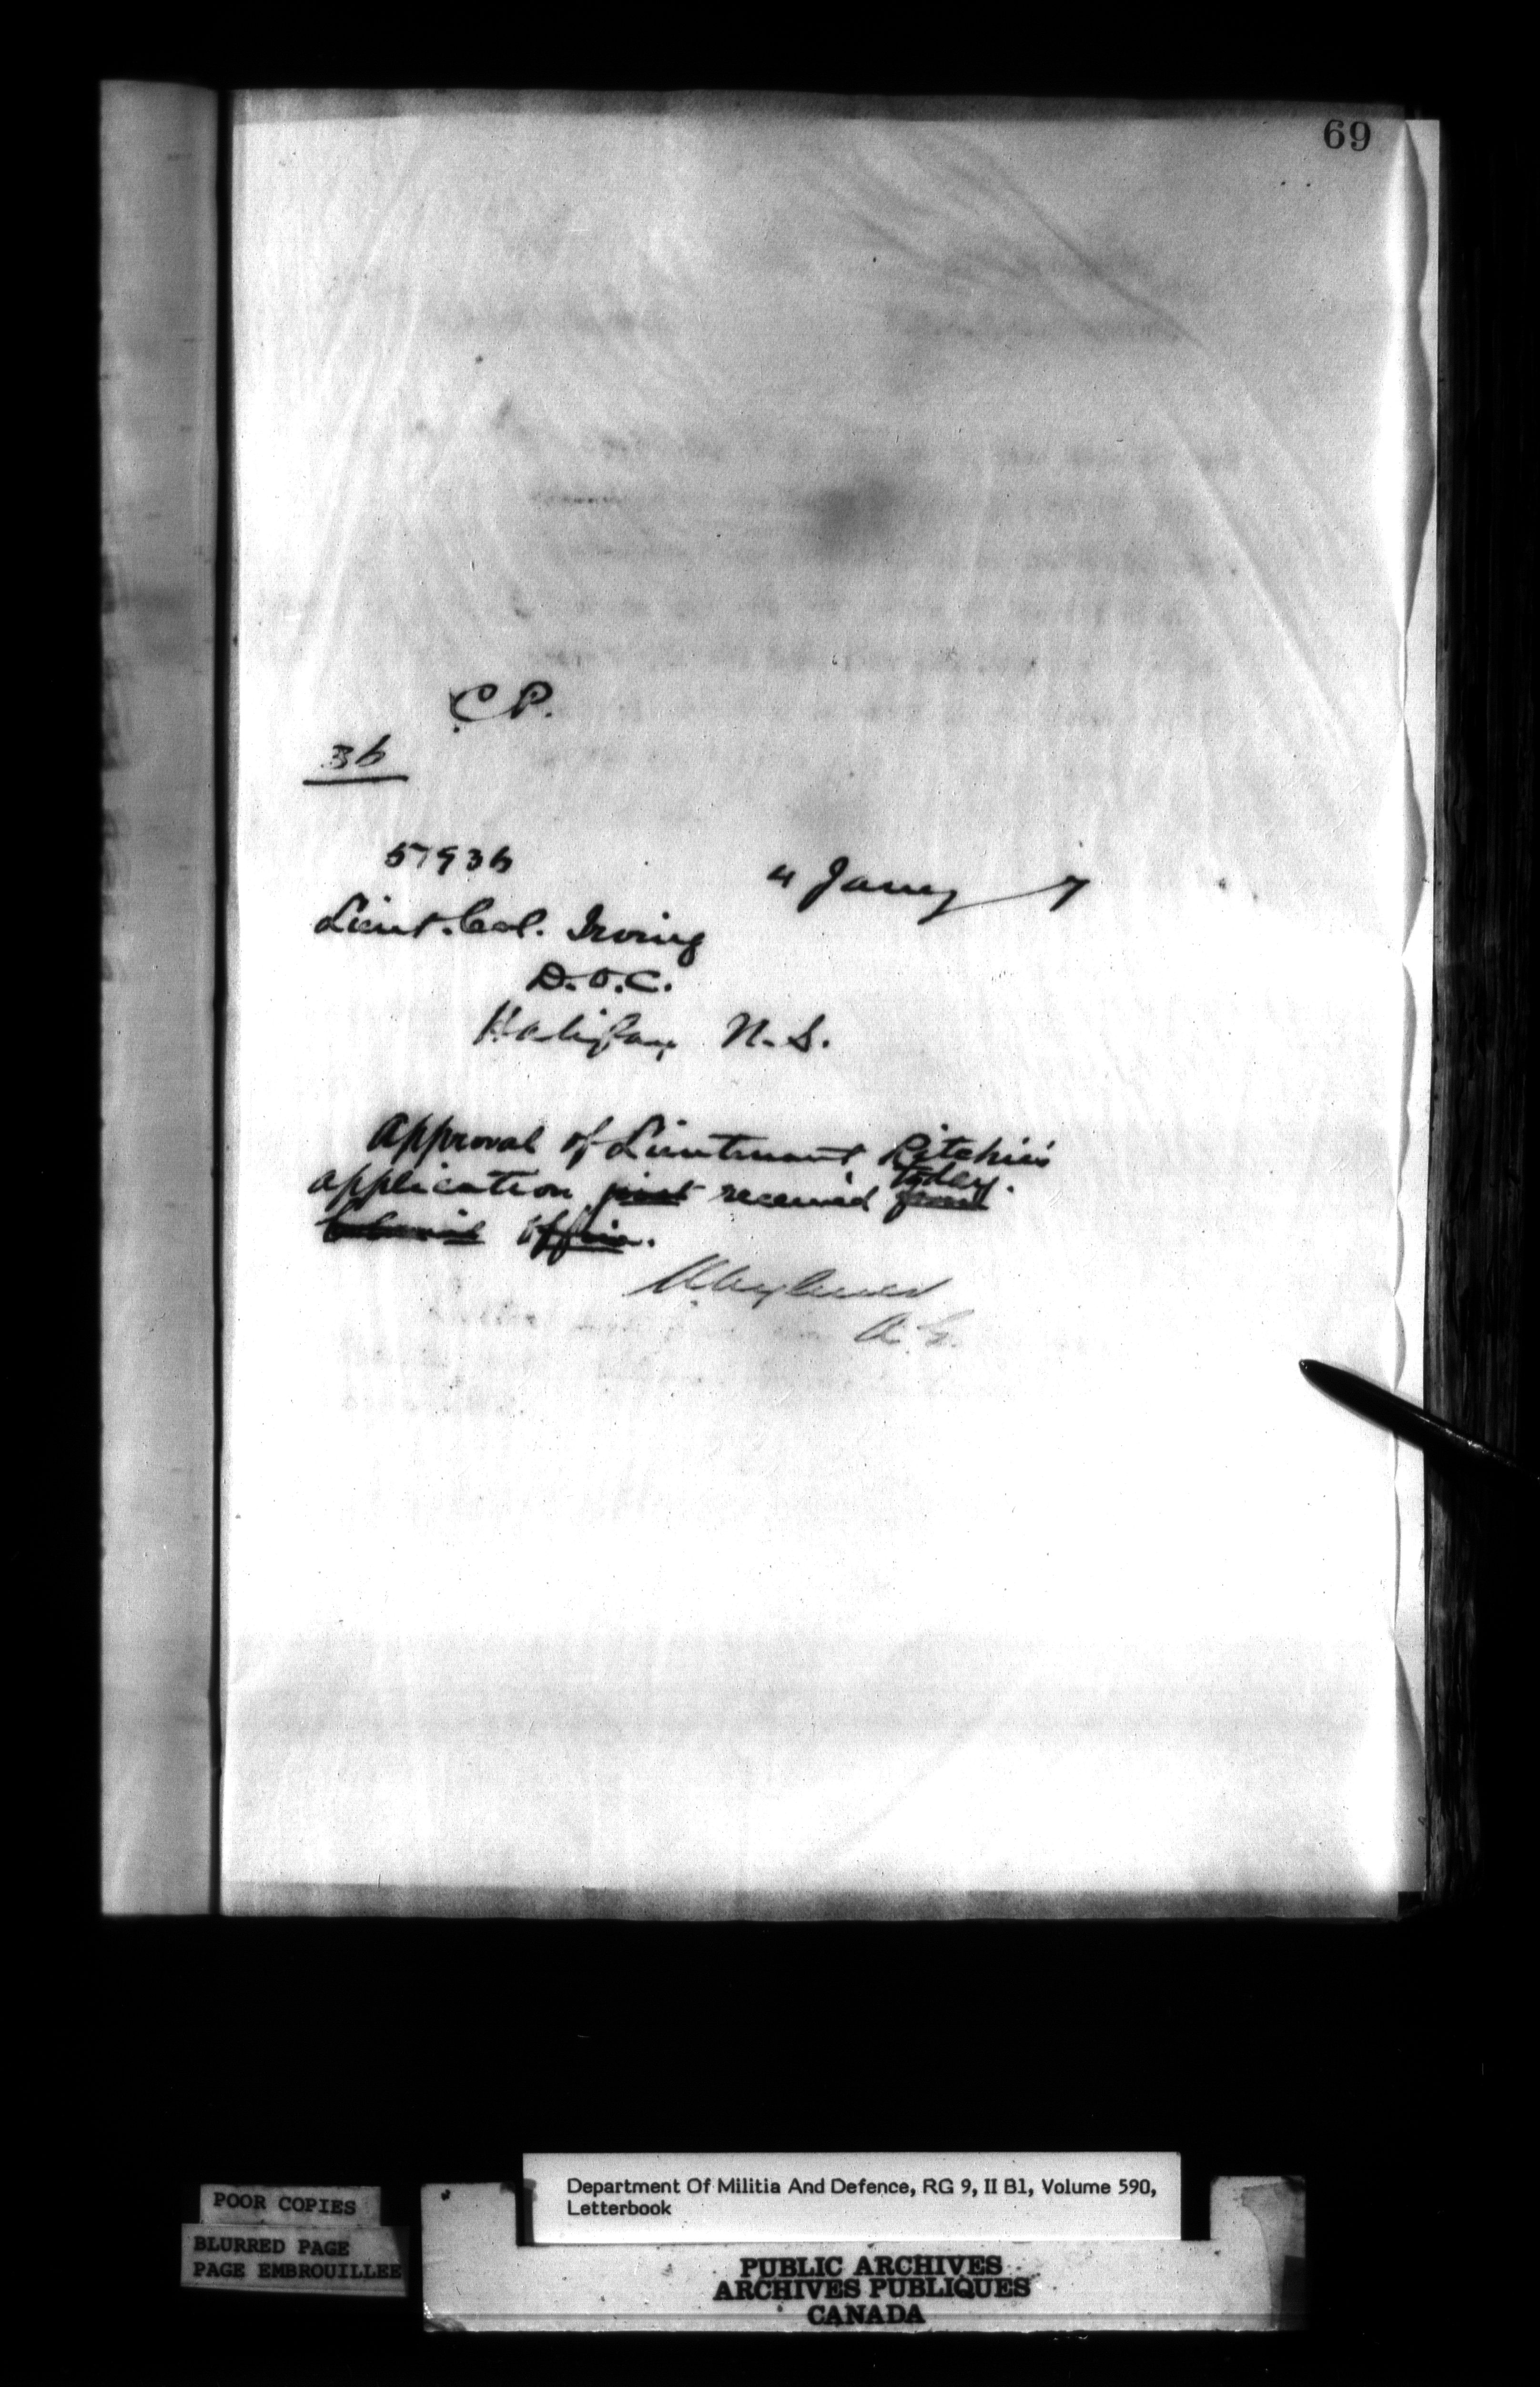 69
C P.
36
57936
4 Jany 7
Lieut. Col. Irving
D.O.C.
Halifax N.S.
Approval of Lieutenant Ritchie's
today.
application just received from
Office.
A. G.
POOR COPIES
BLURRED PAGE
PAGE EMBROUILLEE
Department Of Militia And Defence, RG 9, II B1, Volume 590,
Letterbook
PUBLIC ARCHIVES
ARCHIVES PUBLIQUES
CANADA